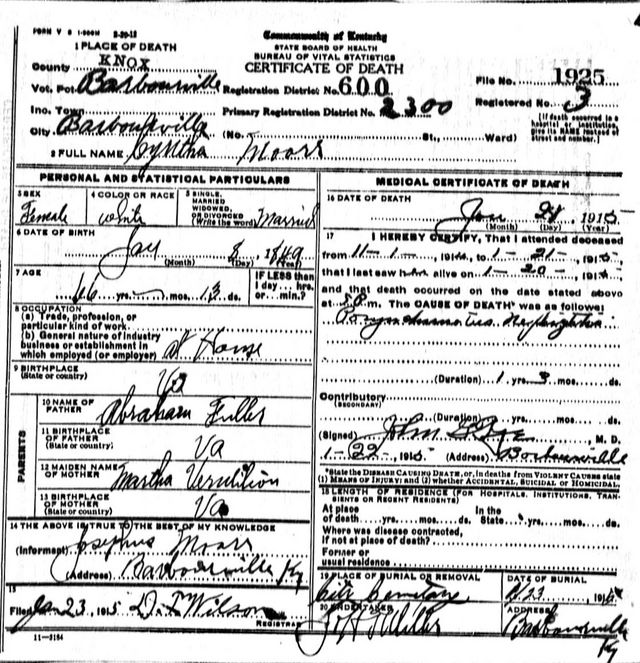 FORM V S 1-500M 3-20-13
Commonwealth of Kentucky
STATE BOARD OF HEALTH
BUREAU OF VITAL STATISTICS
CERTIFICATE OF DEATH
1 PLACE OF DEATH
County KNOX
Vot. Pct. Barbourville
Registration District No. 600
File No. 1925
Inc. Town
Primary Registration District No. 2300
Registered No. 3
City Barbourville
(No. St., Ward)
[If death occurred in a
hospital or institution,
give its NAME instead of
street and number.]
2 FULL NAME Cyntha Moore
PERSONAL AND STATISTICAL PARTICULARS
3 SEX
Female
4 COLOR OR RACE
white
5 SINGLE,
MARRIED
WIDOWED,
OR DIVORCED
(Write the word) Married
6 DATE OF BIRTH
Jan 8, 1849
(Month) (Day) (Year)
7 AGE
66 yrs. mos. 13 ds.
IF LESS than
1 day... hrs.
or... min.?
8 OCCUPATION
(a) Trade, profession, or
particular kind of work
(b) General nature of industry
business or establishment in
which employed (or employer) at Home
9 BIRTHPLACE
(State or country) Va
PARENTS
10 NAME OF
FATHER Abraham Fuller
11 BIRTHPLACE
OF FATHER
(State or country) Va
12 MAIDEN NAME
OF MOTHER Martha
13 BIRTHPLACE
OF MOTHER
(State or country) Va
14 THE ABOVE IS TRUE TO THE BEST OF MY KNOWLEDGE
(Informant) Josephus Moore
(Address) Barbourville Ky
15
Filed Jan 23, 1915 D. F. Wilson
REGISTRAR
11-3184
MEDICAL CERTIFICATE OF DEATH
16 DATE OF DEATH
Jan 21, 1915
(Month) (Day) (Year)
17 I HEREBY CERTIFY, That I attended deceased
from 11-1-, 1914, to 1-21-, 1915
that I last saw her alive on 1-20-, 1915
and that death occurred on the date stated above
at m. The CAUSE OF DEATH* was as follows:
(Duration) 1 yrs. 3 mos. ds.
Contributory
(SECONDARY)
(Duration) yrs. mos. ds.
(Signed) John M. D.
1-22, 1915 (Address) Barbourville
*State the DISEASE CAUSING DEATH, or, in deaths from VIOLENT CAUSES state
(1) MEANS OF INJURY; and (2) whether ACCIDENTAL, SUICIDAL or HOMICIDAL
18 LENGTH OF RESIDENCE (FOR HOSPITALS, INSTITUTIONS, TRAN-
SIENTS OR RECENT RESIDENTS)
At place In the
of death yrs. mos. ds. State yrs. mos. ds.
Where was disease contracted,
if not at place of death?
Former or
usual residence
19 PLACE OF BURIAL OR REMOVAL
City Cemetary
DATE OF BURIAL
1/23, 1915
20 UNDERTAKER
Miller
ADDRESS
Barbourville
Ky